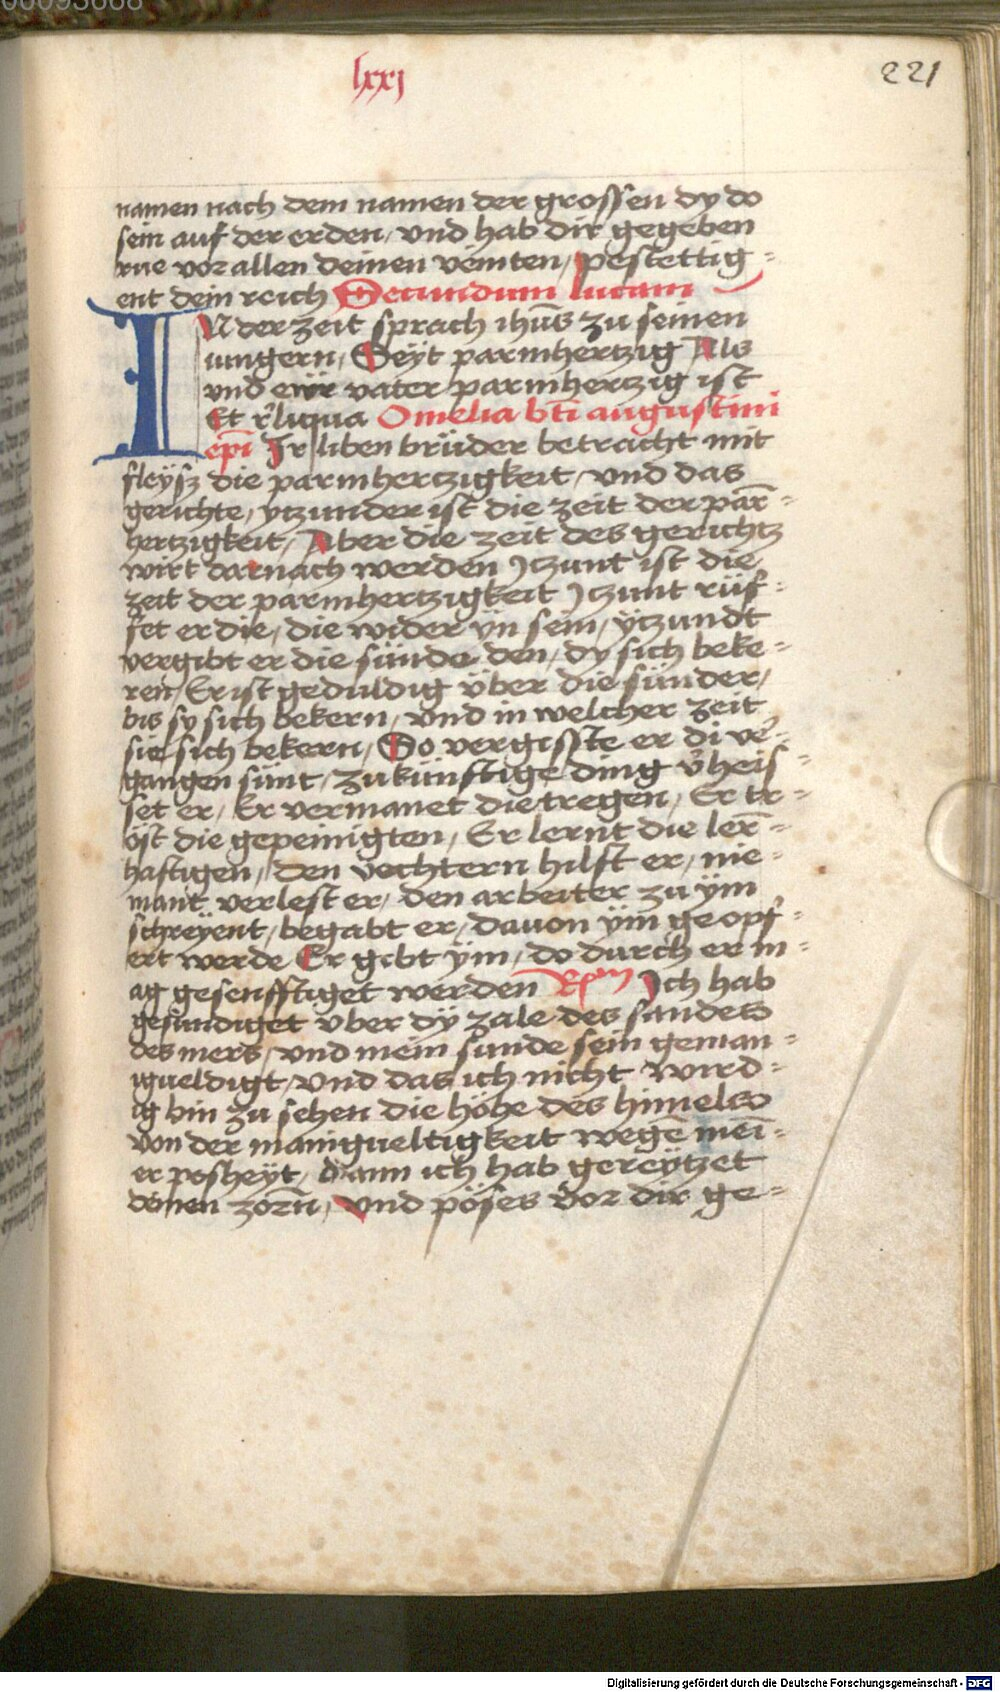 00093668
lxxj
221
namen nach dem namen der grossen dy do
sein auf der erden, vnd hab dir gegeben
rue vor allen deinen veinten, pestettig-
ent dein reich Secundum lucam
IN der zeit sprach ihūs zu seinen
iungern, Seyt parmhertzig Als
vnd ewr vater parmhertzig ist
Et rꝰliqua Omelia bti augustini
epi Ir liben brüder betracht mit
fleÿsz die parmhertzigkeit, vnd das
gerichte, ytzunder ist die zeit der par̄-
hertzigkeit, Aber die zeit des gerichtz
wirt darnach werden Iczunt ist die
zeit der parmhertzigkeit Iczunt rüf-
fet er die, die wider ÿn sein, ÿtzundt
vergibt er die sünde den, dy sich beke-
ren, Er ist geduldig über die sünder,
bis sy sich bekern, vnd in welcher zeit
sie sich bekern, So vergisste er di ver-
gangen sünt, zukünftige ding v̾heis-
set er, Er vermanet die tregen, Er tr-
öst die gepeinigten, Er lernt die ler̄-
haftigen, den vechtern hilft er, nie-
mant verlest er, den arbeiter zu ÿm
schreyent, begabt er, dauon ÿm geopf-
ert werde Er gibt ÿm, do durch er m-
ag gesenfftiget werden Rm Ich hab
gesundiget vber dÿ zale des sandes
des mers, vnd mein sunde sein geman-
igueldigt, vnd das ich nicht wird-
ig bin zu sehen die höhe des himels
von der manigueltigkeit wegē mei-
er posheÿt, dann ich hab gereÿtzet
deinen zorn, vnd pöses vor dir ge-
Digitalisierung gefördert durch die Deutsche Forschungsgemeinschaft - DFG